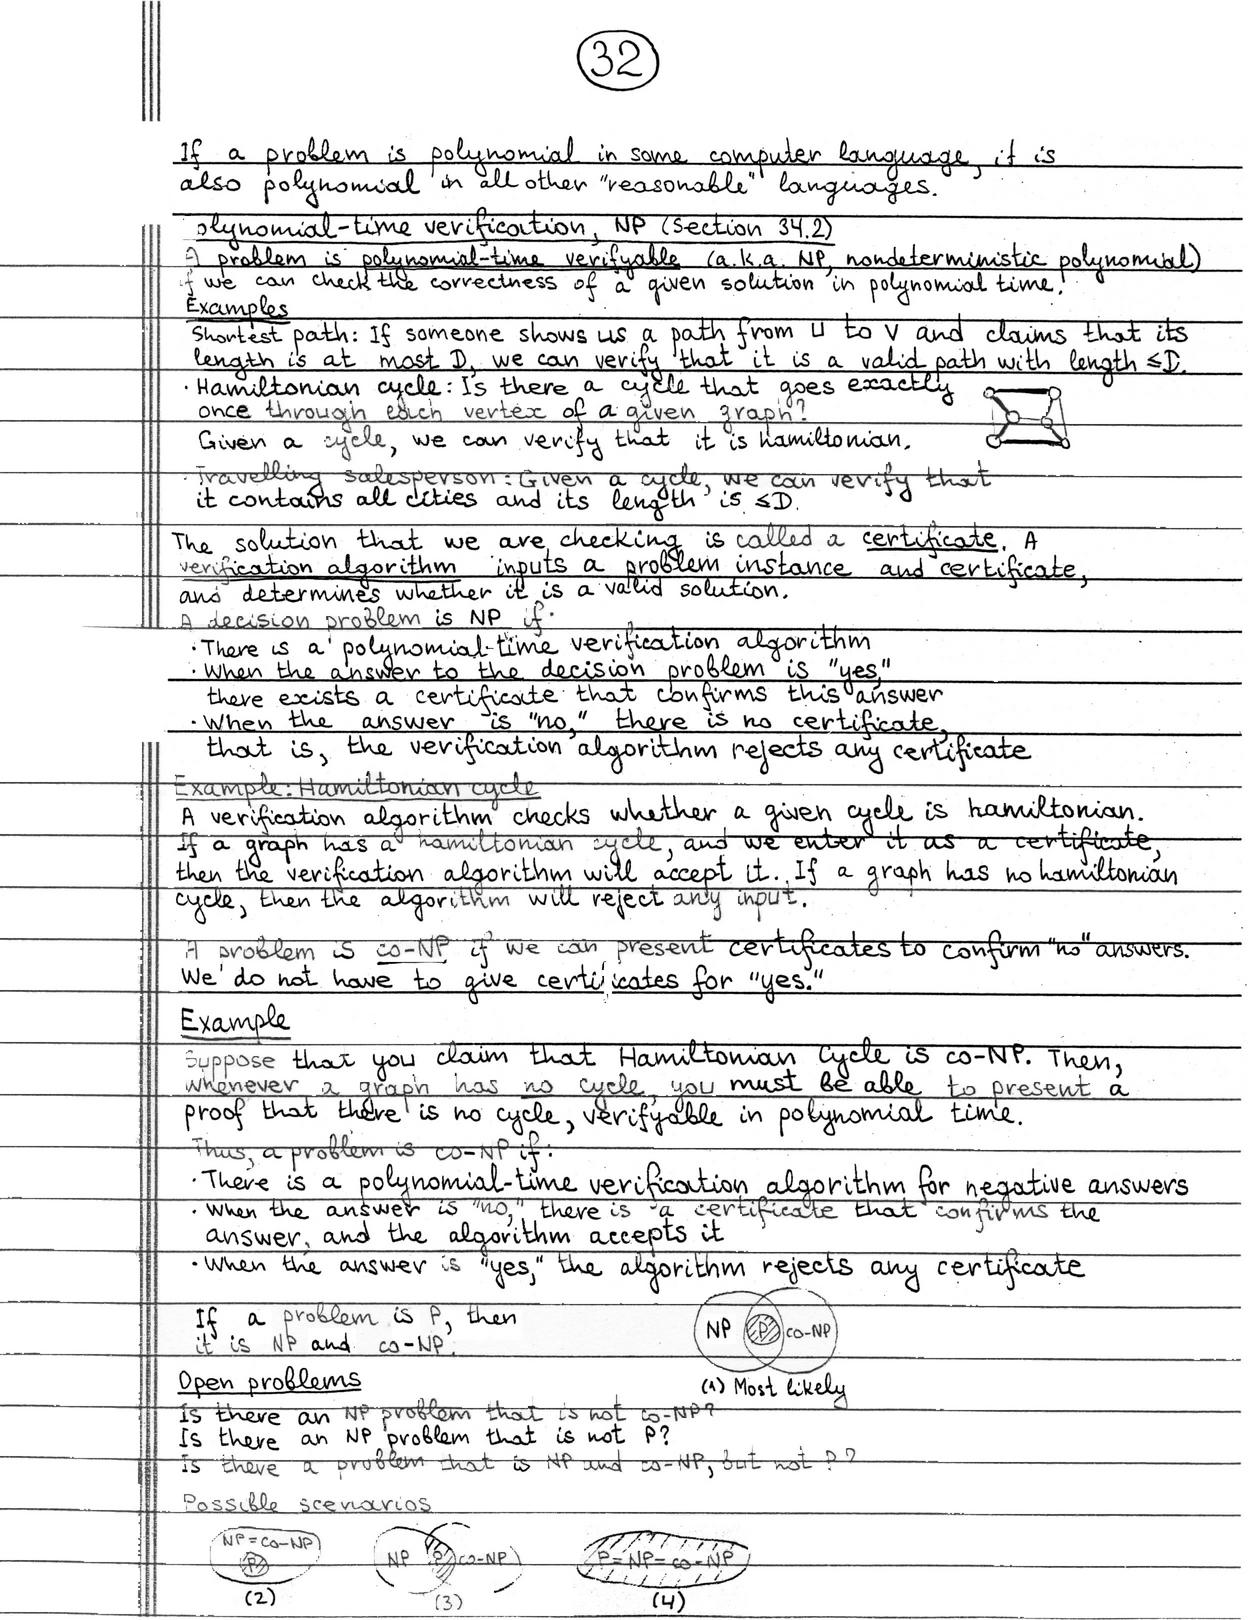 32
If a problem is polynomial in some computer language, it is
also polynomial in all other "reasonable" languages.
olynomial-time verification, NP (Section 34.2)
A problem is polynomial-time verifyable (a.k.a. NP, nondeterministic polynomial)
if we can check the correctness of a given solution in polynomial time.
Examples
Shortest path: If someone shows us a path from u to v and claims that its
length is at most D, we can verify that it is a valid path with length ≤D.
· Hamiltonian cycle: Is there a cycle that goes exactly
once through each vertex of a given graph?
Given a cycle, we can verify that it is hamiltonian.
· Travelling salesperson: Given a cycle, we can verify that
it contains all cities and its length is ≤D.
The solution that we are checking is called a certificate. A
verification algorithm inputs a problem instance and certificate,
and determines whether it is a valid solution.
A decision problem is NP if:
· There is a polynomial-time verification algorithm
· When the answer to the decision problem is "yes,"
there exists a certificate that confirms this answer
· When the answer is "no," there is no certificate,
that is, the verification algorithm rejects any certificate
Example: Hamiltonian cycle
A verification algorithm checks whether a given cycle is hamiltonian.
If a graph has a hamiltonian cycle, and we enter it as a certificate,
then the verification algorithm will accept it. If a graph has no hamiltonian
cycle, then the algorithm will reject any input.
A problem is co-NP if we can present certificates to confirm "no" answers.
We do not have to give certificates for "yes."
Example
Suppose that you claim that Hamiltonian Cycle is co-NP. Then,
whenever a graph has no cycle, you must be able to present a
proof that there is no cycle, verifyable in polynomial time.
Thus, a problem is co-NP if:
· There is a polynomial-time verification algorithm for negative answers
· When the answer is "no," there is a certificate that confirms the
answer, and the algorithm accepts it
· When the answer is "yes," the algorithm rejects any certificate
If a problem is P, then
it is NP and co-NP.
NP P co-NP
(1) Most likely
Open problems
Is there an NP problem that is not co-NP?
Is there an NP problem that is not P?
Is there a problem that is NP and co-NP, but not P?
Possible scenarios
NP=co-NP
P
(2)
NP P co-NP
(3)
P=NP=co-NP
(4)